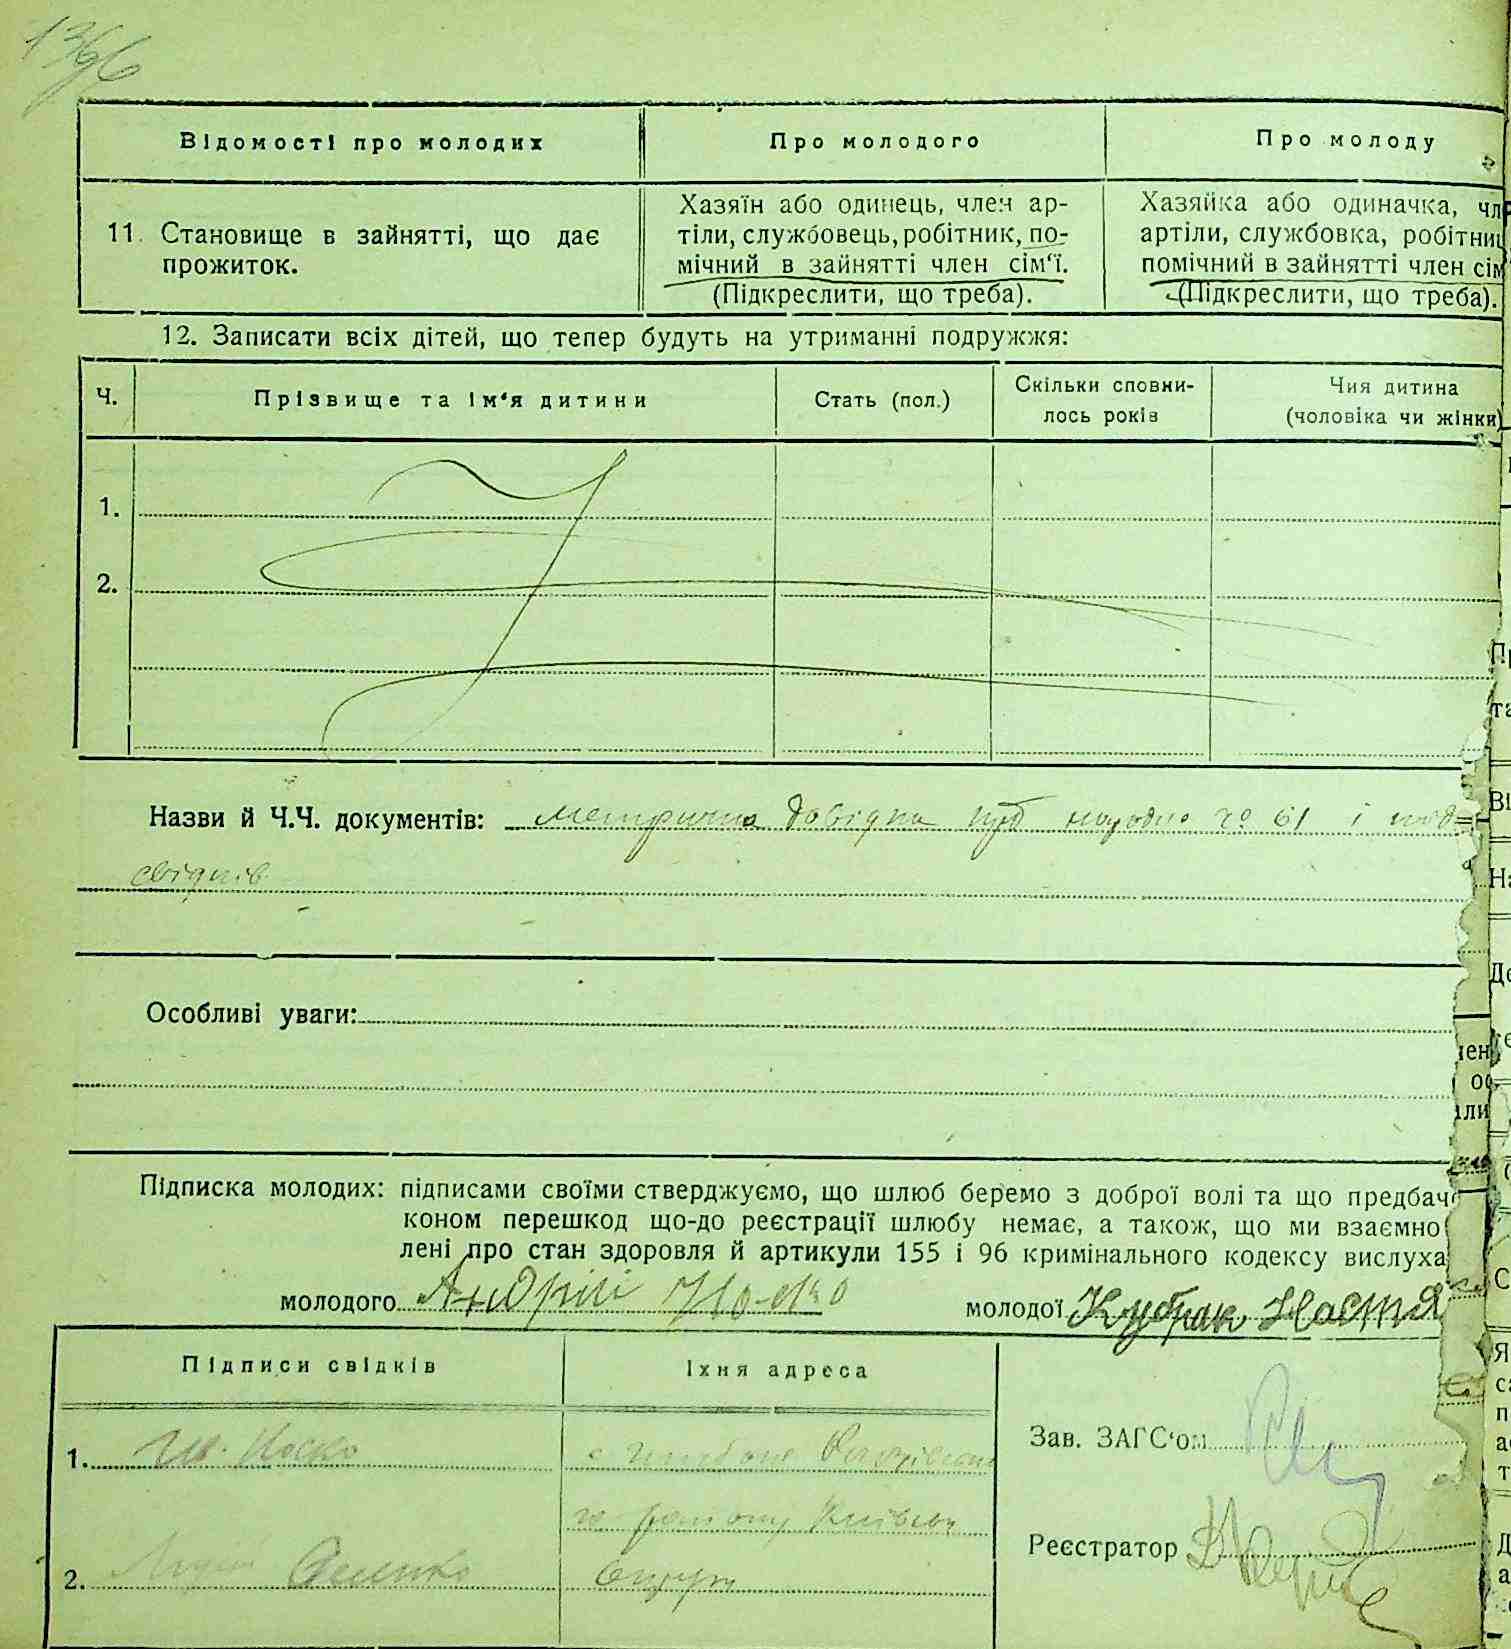 1396
Відомості про молодих
Про молодого
Про молоду
11. Становище в зайнятті, що дає
прожиток.
Хазяїн або одинець, член ар-
тіли, службовець, робітник, по-
мічний в зайнятті член сім'ї.
(Підкреслити, що треба).
Хазяйка або одиначка, чл
артіли, службовка, робітниц
помічний в зайнятті член сім
(Підкреслити, що треба).
12. Записати всіх дітей, що тепер будуть на утриманні подружжя:
Ч.
Прізвище та ім'я дитини
Стать (пол.)
Скільки сповни-
лось років
Чия дитина
(чоловіка чи жінки)
1.
2.
Назви й Ч.Ч. документів: метрична довідка № 61 і
свідків
Особливі уваги:
Підписка молодих: підписами своїми стверджуємо, що шлюб беремо з доброї волі та що предбаче
коном перешкод що-до реєстрації шлюбу немає, а також, що ми взаємно
лені про стан здоровля й артикули 155 і 96 кримінального кодексу вислуха
молодого Андрій
молодої Кубрак Настя
Підписи свідків
Їхня адреса
1. Носко
району Київсько
2.
округи
Зав. ЗАГС'ом
Реєстратор